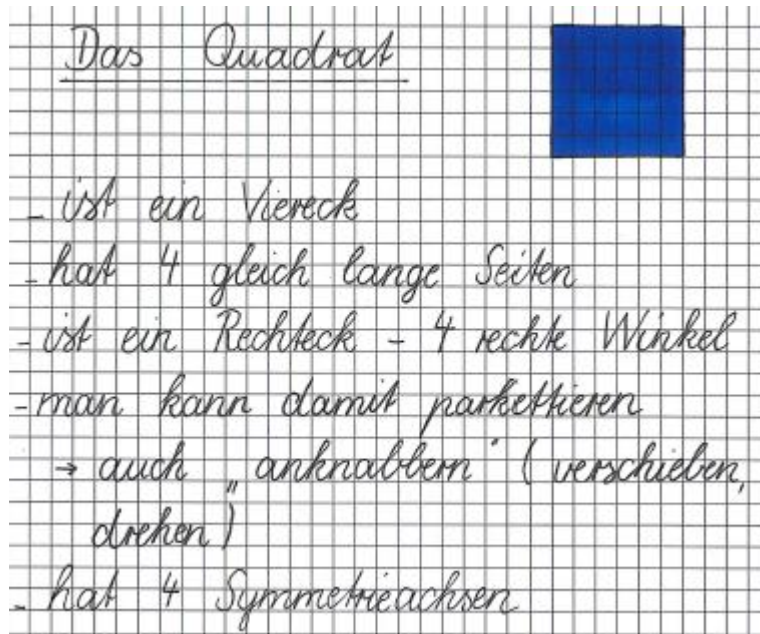 Das Quadrat
- ist ein Viereck
- hat 4 gleich lange Seiten
- ist ein Rechteck - 4 rechte Winkel
- man kann damit parkettieren
→ auch „anknabbern" (verschieben,
drehen)
- hat 4 Symmetrieachsen